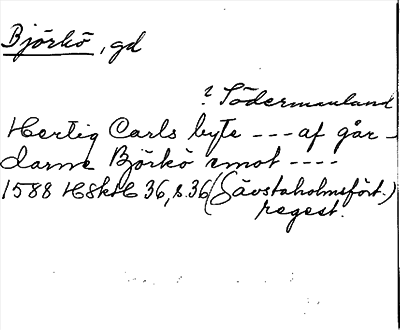 Björkö, gd
? Södermanland
Hertig Carls byte --- af går-
darne Björkö emot ----
1588 HSkH 36, s. 36 (Sävstaholmsfört.)
regest.